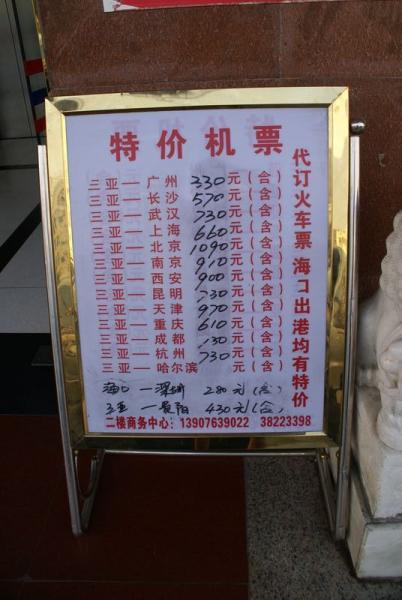 特价机票
三亚—广州 330元(含)
三亚—长沙 570元(含)
三亚—武汉 730元(含)
三亚—上海 660元(含)
三亚—北京 1090元(含)
三亚—南京 910元(含)
三亚—西安 900元(含)
三亚—昆明 元(含)
三亚—天津 970元(含)
三亚—重庆 610元(含)
三亚—成都 元(含)
三亚—杭州 730元(含)
三亚—哈尔滨 元(含)
海口—深圳 280元(含)
三亚—贵阳 430元(含)
代订火车票 海口出港均有特价
二楼商务中心:13907639022 38223398